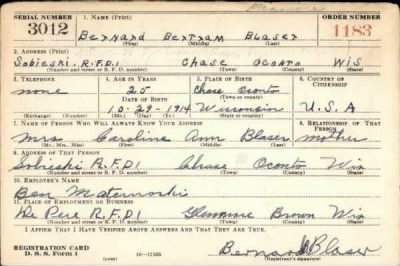 SERIAL NUMBER 1. NAME (Print) ORDER NUMBER
3012 Bernard Bertram Blaser 1183
(First) (Middle) (Last)
2. ADDRESS (Print)
Sobieski R.F.D.1 Chase Oconto Wis
(Number and street or R. F. D. number) (Town) (County) (State)
3. TELEPHONE 4. AGE IN YEARS 5. PLACE OF BIRTH 6. COUNTRY OF CITIZENSHIP
none 25 Chase Oconto
(Town or county)
DATE OF BIRTH
10-29-1914 Wisconsin U.S.A
(Exchange) (Number) (Mo.) (Day) (Yr.) (State or country)
7. NAME OF PERSON WHO WILL ALWAYS KNOW YOUR ADDRESS 8. RELATIONSHIP OF THAT PERSON
Mrs Caroline Ann Blaser mother
(Mr., Mrs., Miss) (First) (Middle) (Last)
9. ADDRESS OF THAT PERSON
Sobieski R.F.D1 Chase Oconto Wis
(Number and street or R. F. D. number) (Town) (County) (State)
10. EMPLOYER'S NAME
Ben
11. PLACE OF EMPLOYMENT OR BUSINESS
De Pere R.F.D1 Glenmore Brown Wis
(Number and street or R. F. D. number) (Town) (County) (State)
I AFFIRM THAT I HAVE VERIFIED ABOVE ANSWERS AND THAT THEY ARE TRUE.
REGISTRATION CARD
D. S. S. Form 1 16—17105 Bernard Blaser
(Registrant's signature)